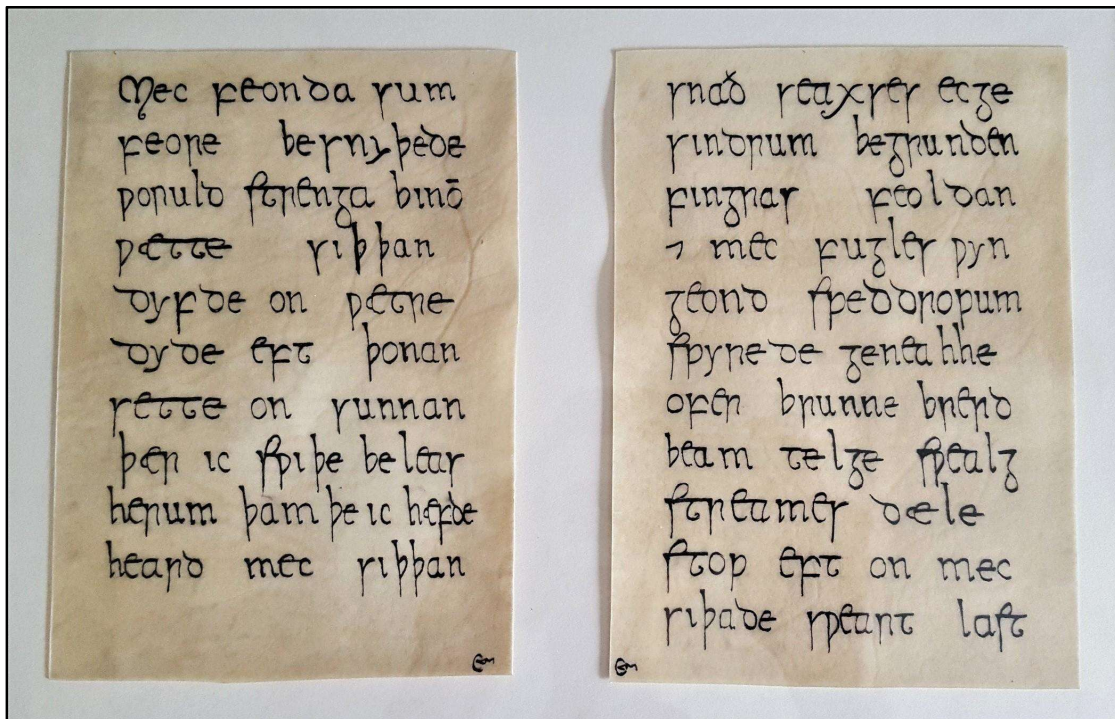 Mec feonda sum
feore besnyþede
ƿoruld strenga binō
ƿætte siþþan
dyfde on ƿætre
dyde eft þonan
sette on sunnan
þær ic sƿiþe beleas
herum þam þe ic hefde
heard mec siþþan
snað seaxses ecge
sindrum begrunden
fingras feoldan
⁊ mec fugles ƿyn
geond speddropum
spyrede geneahhe
ofer brunne brerd
beam telge sƿealg
streames dæle
stop eft on mec
siþade sƿeart last